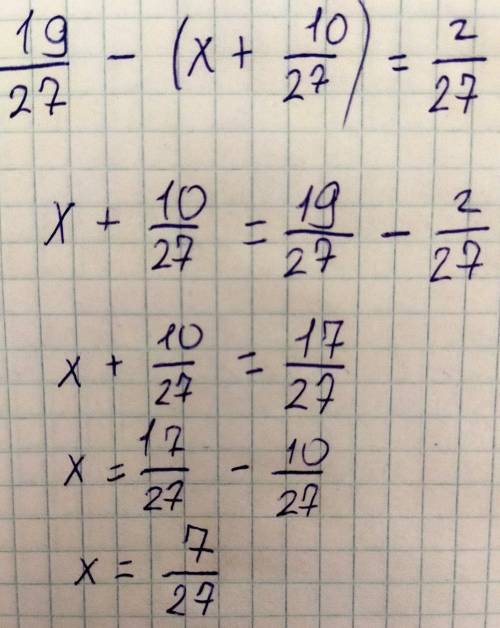 19/27 - (x + 10/27) = 2/27
x + 10/27 = 19/27 - 2/27
x + 10/27 = 17/27
x = 17/27 - 10/27
x = 7/27